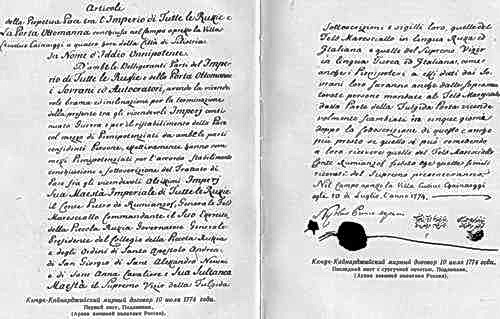 Articoli
della Perpetua Pace tra l'Imperio di Tutte le Russie e
La Porta Ottomanna conchiusa nel campo presso la Villa
Kiudiuc Cainargi a quattro ore della Città di Silistria
In Nome d'Iddio Onnipotente.
D'ambe le Belligeranti Parti dell'Impe-
rio di Tutte le Russie e della Porta Ottomanna
i Sovrani ed Autocratori, avendo la vicende-
vole brama ed inclinazione per la terminazione
della presente tra gli vicendevoli Imperj conti-
nuata Guerra e per il ristabilimento della Pace
col mezzo di Plenipotenziarj da ambe le parti
confidenti Persone, effettivamente hanno com-
messi Plenipotenziarj per l'accordo stabilimento
conclusione e sottoscrizione del Trattato di
Pace fra gli vicendevoli Altissimi Imperj
Sua Maestà Imperiale di Tutte le Russie
il Conte Pietro de Rumianzof, Generale Feld
Maresciallo Commandante il Suo Esercito,
della Piccola Russia Governatore Generale
Presidente del Collegio della Piccola Russia
e degli Ordini di Santo Apostolo Andrea,
di San Giorgio di Sant Alexandro Newski
e di Sant Anna Cavaliere e Sua Sultanea
Maestà il Supremo Vizir della Fulgida
Кючук-Кайнарджийский мирный договор 10 июля 1774 года.
Первый лист. Подлинник.
(Архив внешней политики России).
sottoscrizioni e sigilli loro, quello del
Feld Maresciallo in lingua Russa ed
Italiana e quello del Supremo Vizir
in lingua Turca ed Italiana, come
anche i Plenipoteri a essi dati dai So-
vrani loro saranno anche dalle soprano-
tate persone mandate al Feld Maresciallo
dalla Parte della Fulgida Porta vicende-
volmente scambiati in cinque giorni
doppo la sottoscrizione di questo, e anche
più presto se questo si può concedendo
a loro ricevere quelli del Feld Maresciallo
Conte Rumianzof subito che questi simili
ricevuti dal Supremo
Nel Campo apresso la Villa Cudiuc Cainargi
agli 10 di Luglio, l'anno 1774,
Кючук-Кайнарджийский мирный договор 10 июля 1774 года.
Последний лист с сургучной печатью. Подлинник.
(Архив внешней политики России).